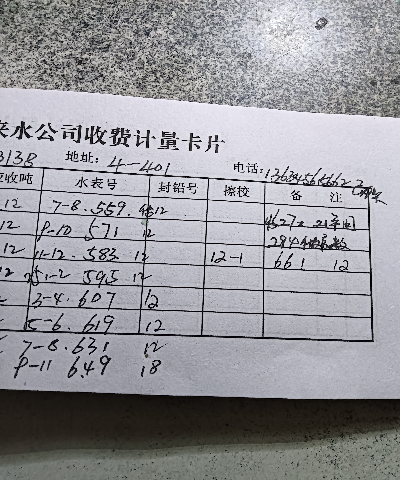 来水公司收费计量卡片
3138 地址: 4-401 电话:
收吨 水表号 封铅号 擦校 备注
12 7-8.559 12
12 9-10 571 12
12 11-12.583 12 12-1 661 12
12 1-2 595 12
3-4.607 12
5-6.619 12
7-8.631 12
9-11 649 18